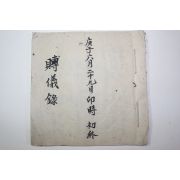 庚子六月二十九日卯時初終
賻儀錄